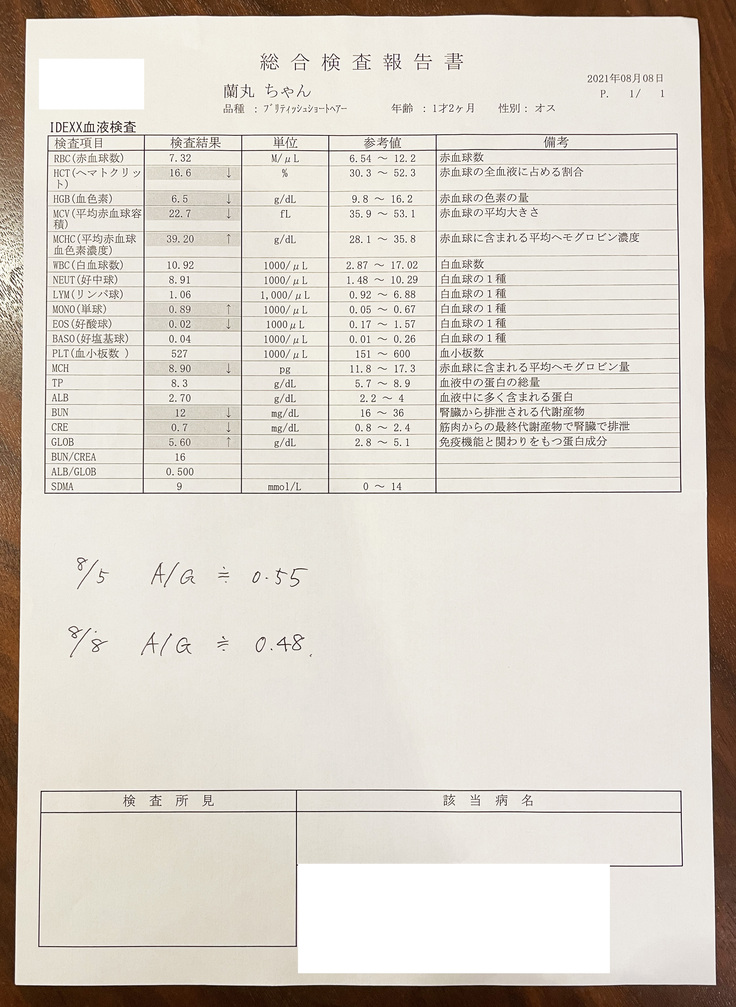 総合検査報告書
2021年08月08日
P. 1/ 1
蘭丸 ちゃん
品種 : ﾌﾞﾘﾃｨｯｼｭｼｮｰﾄﾍｱｰ 年齢 : 1才2ヶ月 性別 : オス
IDEXX血液検査
検査項目 検査結果 単位 参考値 備考
RBC(赤血球数) 7.32 M/μL 6.54 ～ 12.2 赤血球数
HCT(ヘマトクリッ 16.6 ↓ % 30.3 ～ 52.3 赤血球の全血液に占める割合
ト)
HGB(血色素) 6.5 ↓ g/dL 9.8 ～ 16.2 赤血球の色素の量
MCV(平均赤血球容 22.7 ↓ fL 35.9 ～ 53.1 赤血球の平均大きさ
積)
MCHC(平均赤血球 39.20 ↑ g/dL 28.1 ～ 35.8 赤血球に含まれる平均ヘモグロビン濃度
血色素濃度)
WBC(白血球数) 10.92 1000/μL 2.87 ～ 17.02 白血球数
NEUT(好中球) 8.91 1000/μL 1.48 ～ 10.29 白血球の1種
LYM(リンパ球) 1.06 1,000/μL 0.92 ～ 6.88 白血球の1種
MONO(単球) 0.89 ↑ 1000/μL 0.05 ～ 0.67 白血球の1種
EOS(好酸球) 0.02 ↓ 1000μL 0.17 ～ 1.57 白血球の1種
BASO(好塩基球) 0.04 1000/μL 0.01 ～ 0.26 白血球の1種
PLT(血小板数 ) 527 1000/μL 151 ～ 600 血小板数
MCH 8.90 ↓ pg 11.8 ～ 17.3 赤血球に含まれる平均ヘモグロビン量
TP 8.3 g/dL 5.7 ～ 8.9 血液中の蛋白の総量
ALB 2.70 g/dL 2.2 ～ 4 血液中に多く含まれる蛋白
BUN 12 ↓ mg/dL 16 ～ 36 腎臓から排泄される代謝産物
CRE 0.7 ↓ mg/dL 0.8 ～ 2.4 筋肉からの最終代謝産物で腎臓で排泄
GLOB 5.60 ↑ g/dL 2.8 ～ 5.1 免疫機能と関わりをもつ蛋白成分
BUN/CREA 16
ALB/GLOB 0.500
SDMA 9 mmol/L 0 ～ 14
8/5 A/G ≒ 0.55
8/8 A/G ≒ 0.48.
検査所見 該当病名